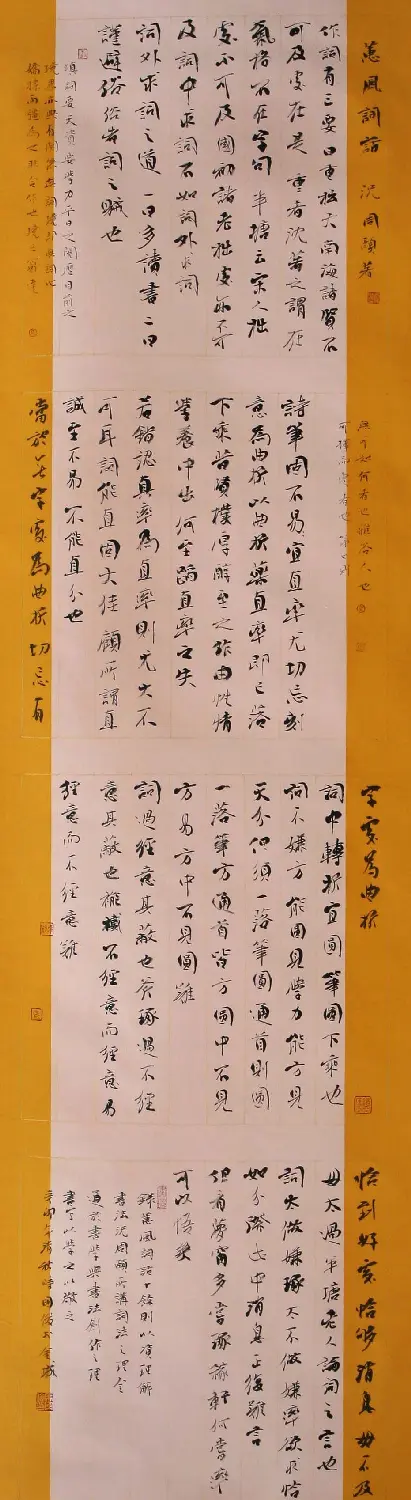 蕙風詞話 況周頤著
作詞有三要曰重拙大南渡諸賢不
可及處在是 重者沈著之謂在
氣格不在字句 半塘云宋人拙
處不可及國初諸老拙處亦不可
及 詞中求詞不如詞外求詞
詞外求詞之道一曰多讀書二曰
謹避俗俗者詞之賊也
填詞要天資要學力平日之閱歷目前之
境界亦與有關係
無可如何者也雅俗人也
可擇而為者也
詩筆固不易宜直率尤切忌刻
意為曲折以曲折藥直率即已落
下乘昔賢樸厚醇至之作由性情
學養中出何至蹈直率之失
若錯認真率為直率則尤大不
可耳 詞能直固大佳顧所謂直
誠至不易不能直分也
當於無字處為曲折切忌有
字處為曲折
詞中轉折宜圓 筆圓下乘也
詞不嫌方能圓見學力能方見
天分但須一落筆圓通首則圓
一落筆方通首皆方圓中不見
方易方中不見圓難
詞過經意其蔽也斧琢過不經
意其蔽也襤襶不經意而經意易
經意而不經意難
恰到好處恰夠消息毋不及
毋太過半塘老人論詞之言也
詞太做嫌琢太不做嫌率欲求恰
如分際此中消息正復難言
但看夢窗多嘗琢稼軒何嘗率
可以悟矣
錄蕙風詞話十餘則以資理解
書法況周頤所講詞法之理念
通於書學與書法創作之理